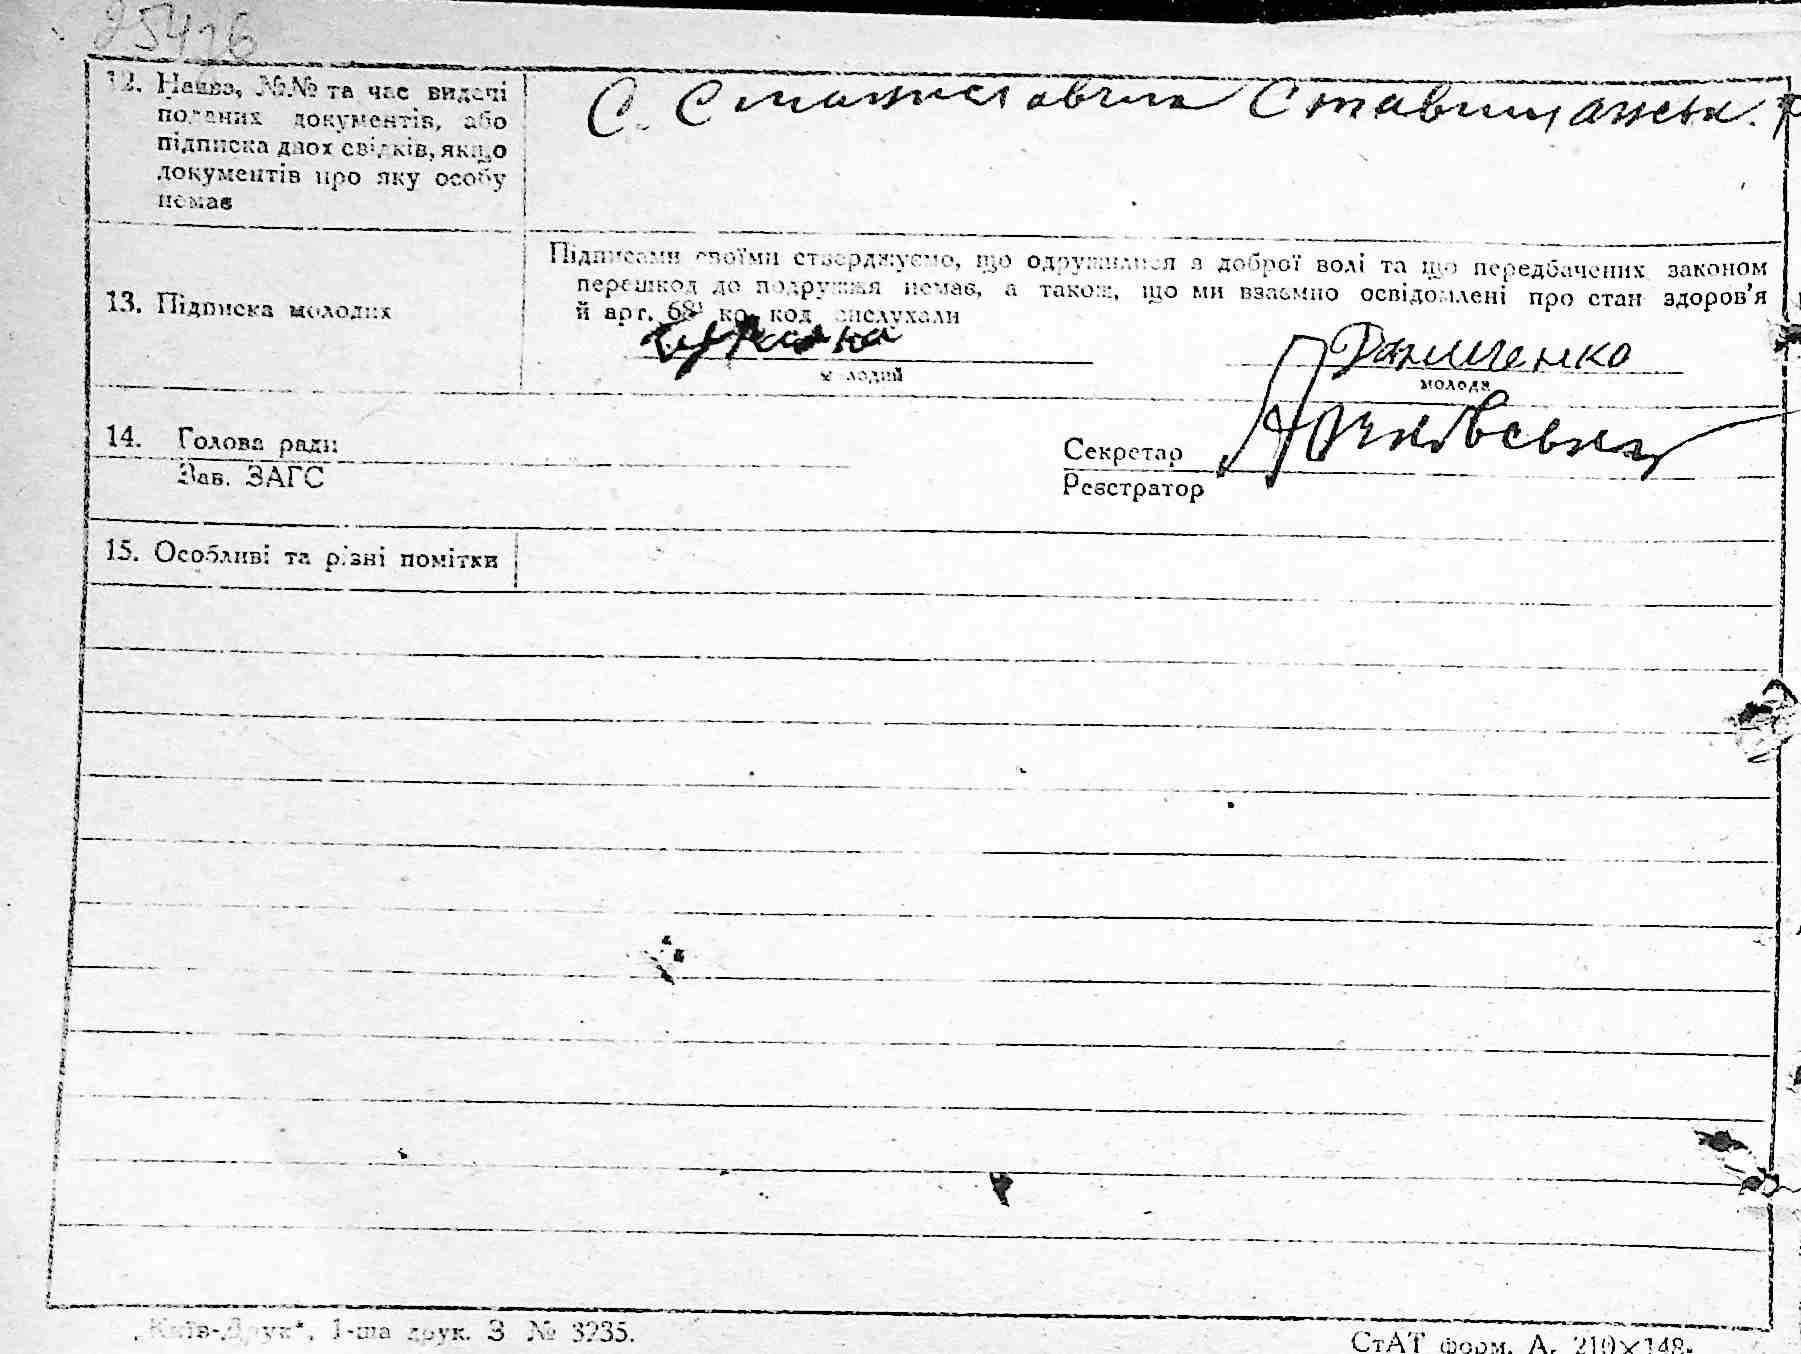 25426
12. Назва, №№ та час видачі
поданих документів, або
підписка двох свідків, якщо
документів про яку особу
немає
С. Станиславчик Ставищанськ. р
13. Підписка молодих
Підписами своїми стверджуємо, що одружилися з доброї волі та що передбачених законом
перешкод до подружжя немає, а також, що ми взаємно освідомлені про стан здоров'я
й арт. 68 кр. код вислухали
Данченко
молодий
молода
14. Голова ради
Зав. ЗАГС
Секретар
Реєстратор
15. Особливі та різні помітки
„Київ-Друк", 1-ша друк. З № 3235.
СтАТ форм. А. 210×148.